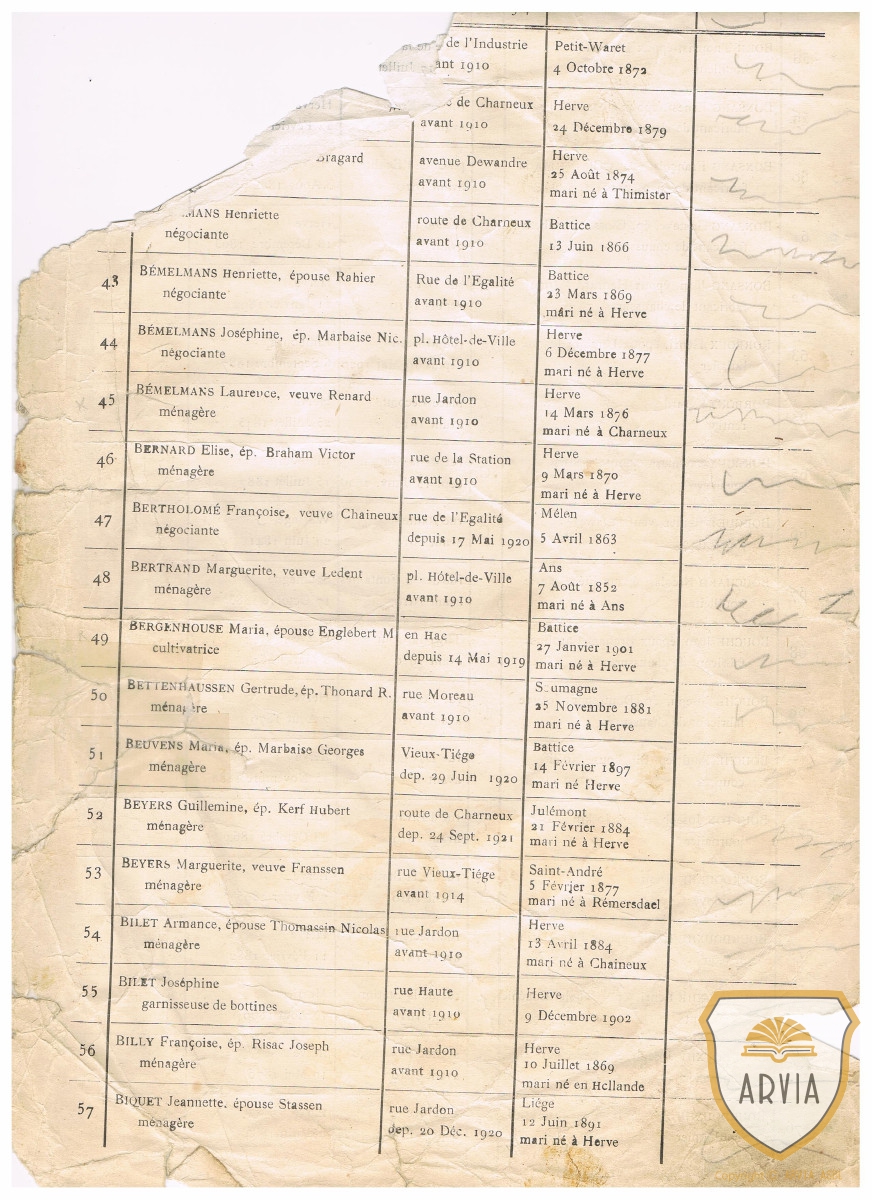 de l'Industrie
ant 1910
Petit-Waret
4 Octobre 1872
de Charneux
avant 1910
Herve
24 Décembre 1879
Bragard
avenue Dewandre
avant 1910
Herve
25 Août 1874
mari né à Thimister
MANS Henriette
négociante
route de Charneux
avant 1910
Battice
13 Juin 1866
43
BÉMELMANS Henriette, épouse Rahier
négociante
Rue de l'Egalité
avant 1910
Battice
23 Mars 1869
mari né à Herve
44
BÉMELMANS Joséphine, ép. Marbaise Nic.
négociante
pl. Hôtel-de-Ville
avant 1910
Herve
6 Décembre 1877
mari né à Herve
45
BÉMELMANS Laurence, veuve Renard
ménagère
rue Jardon
avant 1910
Herve
14 Mars 1876
mari né à Charneux
46
BERNARD Elise, ép. Braham Victor
ménagère
rue de la Station
avant 1910
Herve
9 Mars 1870
mari né à Herve
47
BERTHOLOMÉ Françoise, veuve Chaineux
négociante
rue de l'Egalité
depuis 17 Mai 1920
Mélen
5 Avril 1863
48
BERTRAND Marguerite, veuve Ledent
ménagère
pl. Hôtel-de-Ville
avant 1910
Ans
7 Août 1852
mari né à Ans
49
BERGENHOUSE Maria, épouse Englebert M
cultivatrice
en Hac
depuis 14 Mai 1919
Battice
27 Janvier 1901
mari né à Herve
50
BETTENHAUSSEN Gertrude, ép. Thonard R.
ménagère
rue Moreau
avant 1910
S umagne
25 Novembre 1881
mari né à Herve
51
BEUVENS Maria, ép. Marbaise Georges
ménagère
Vieux-Tiége
dep. 29 Juin 1920
Battice
14 Février 1897
mari né à Herve
52
BEYERS Guillemine, ép. Kerf Hubert
ménagère
route de Charneux
dep. 24 Sept. 1921
Julémont
21 Février 1884
mari né à Herve
53
BEYERS Marguerite, veuve Franssen
ménagère
rue Vieux-Tiége
avant 1914
Saint-André
5 Février 1877
mari né à Rémersdael
54
BILET Armance, épouse Thomassin Nicolas
ménagère
rue Jardon
avant 1910
Herve
13 Avril 1884
mari né à Chaineux
55
BILET Joséphine
garnisseuse de bottines
rue Haute
avant 1910
Herve
9 Décembre 1902
56
BILLY Françoise, ép. Risac Joseph
ménagère
rue Jardon
avant 1910
Herve
10 Juillet 1869
mari né en Hollande
57
BIQUET Jeannette, épouse Stassen
ménagère
rue Jardon
dep. 20 Déc. 1920
Liége
12 Juin 1891
mari né à Herve
ARVIA